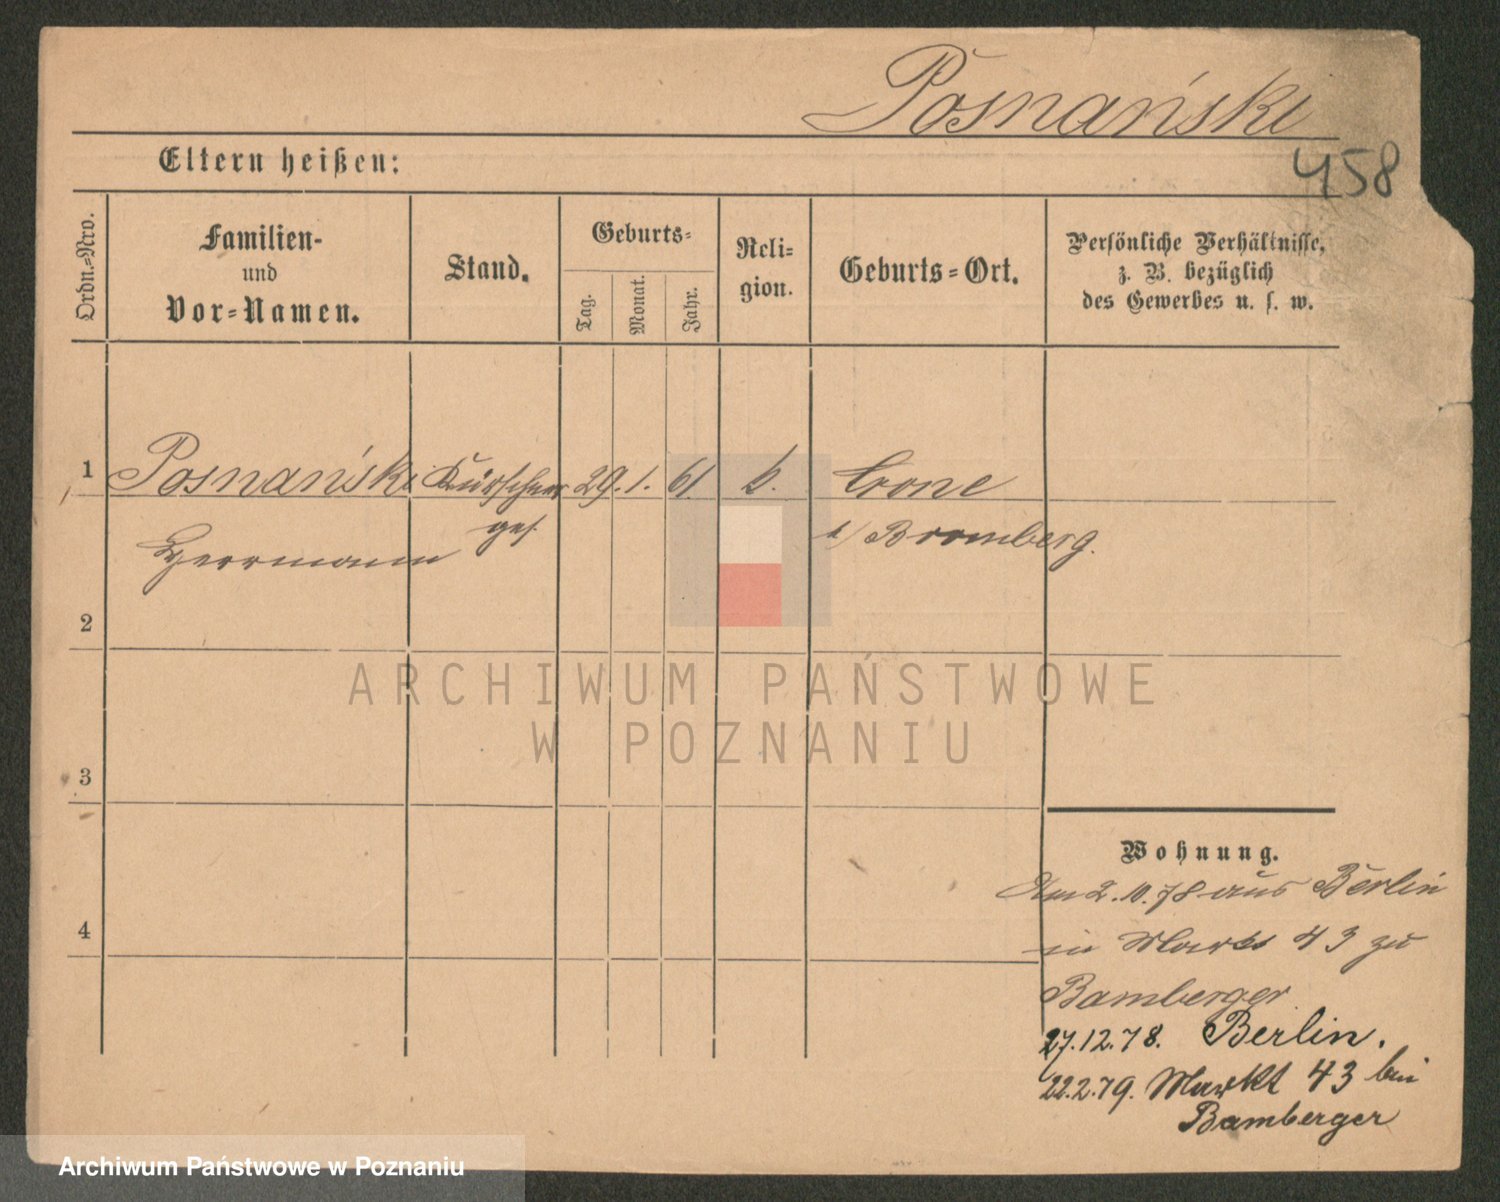 Posnański
458
Eltern heißen:
Ordn.=Nro.
Familien-
und
Vor=Namen.
Stand.
Geburts=
Tag.
Monat.
Jahr.
Reli-
gion.
Geburts=Ort.
Persönliche Verhältnisse,
z. B. bezüglich
des Gewerbes u. s. w.
1 Posnański Kürschner 29. 1. 61. Crone
Herrmann ges. a/ Bromberg.
2
ARCHIWUM PAŃSTWOWE
W POZNANIU
3
Wohnung.
Am 2.10.78 aus Berlin
4
in Markt 43 zu
Bamberger
27.12.78. Berlin.
22.2.79. Markt 43 bei
Bamberger
Archiwum Państwowe w Poznaniu